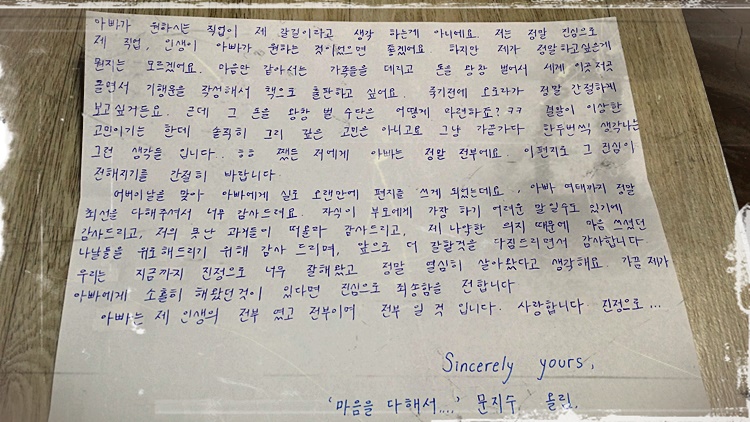 아빠가 원하시는 직업이 제 갈길이라고 생각 하는게 아니에요. 저는 정말 진심으로
제 직업, 인생이 아빠가 원하는 것이었으면 좋겠어요 하지만 제가 정말하고싶은게
뭔지는 모르겠어요. 마음만 같아서는 가족들을 데리고 돈을 왕창 벌어서 세계 이곳저곳
돌면서 기행문을 작성해서 책으로 출판하고 싶어요. 죽기전에 오로라가 정말 간절하게
보고싶거든요. 근데 그 돈을 왕창 벌 수단은 어떻게 마련하죠? ㅋㅋ 결말이 이상한
고민이기는 한데 솔직히 그리 깊은 고민은 아니고요 그냥 가끔가다 한두번씩 생각나는
그런 생각들 입니다. ㅎㅎ 쨌든 저에게 아빠는 정말 전부에요. 이편지로 그 진심이
전해지기를 간절히 바랍니다.
어버이날을 맞아 아빠에게 실로 오랜만에 편지를 쓰게 되었는데요., 아빠 여태까지 정말
최선을 다해주셔서 너무 감사드려요. 자식이 부모에게 가장 하기 어려운 말일수도 있기에
감사드리고, 저의 못난 과거들이 떠올라 감사드리고, 제 나약한 의지 때문에 마음 쓰셨던
나날들을 위로해드리기 위해 감사 드리며, 앞으로 더 잘할것을 다짐드리면서 감사합니다
우리는 지금까지 진정으로 너무 잘해왔고 정말 열심히 살아왔다고 생각해요. 가끔 제가
아빠에게 소홀히 해왔던것이 있다면 진심으로 죄송함을 전합니다
아빠는 제 인생의 전부 였고 전부이며 전부 일 것 입니다. 사랑합니다 진정으로...
Sincerely yours,
'마음을 다해서....' 문지수 올림.